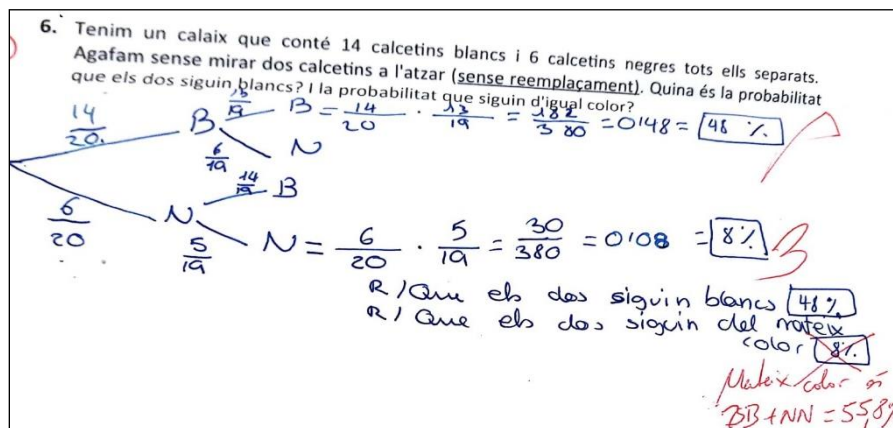 6. Tenim un calaix que conté 14 calcetins blancs i 6 calcetins negres tots ells separats.
Agafam sense mirar dos calcetins a l'atzar (sense reemplaçament). Quina és la probabilitat
que els dos siguin blancs? I la probabilitat que siguin d'igual color?
14/20 B 13/19 B = 14/20 · 13/19 = 182/380 = 0'48 = 48 %
6/19 N
14/19 B
6/20 N 5/19 N = 6/20 · 5/19 = 30/380 = 0'08 = 8% 3
R/ Que els dos siguin blancs 48%
R/ Que els dos siguin del mateix
color 8%
Mateix color és
BB+NN = 55,8%